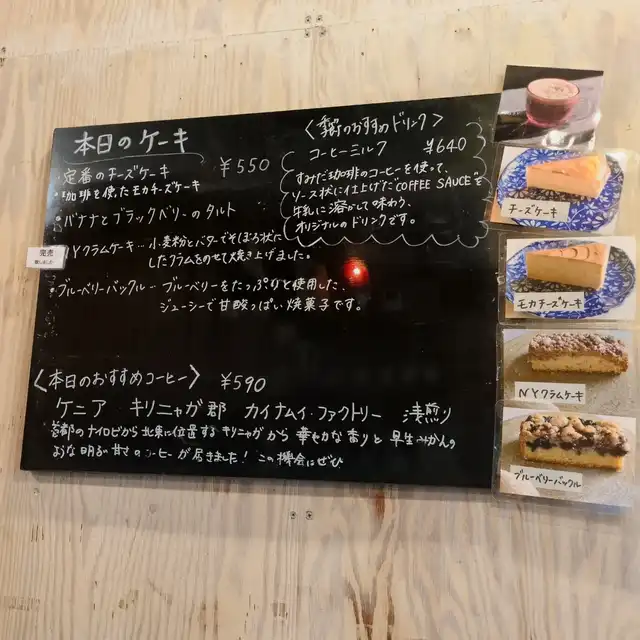 本日のケーキ
¥550
・定番のチーズケーキ
・珈琲を使たモカチーズケーキ
・バナナとブラックベリーのタルト
完売
致しました
NYクラムケーキ… 小麦粉とバターでそぼろ状に
したクラムをのせて焼き上げました。
・ブルーベリーバックル ― ブルーベリーをたっぷりと使用した、
ジューシーで甘酸っぱい焼菓子です。
〈季節のおすすめドリンク〉
コーヒーミルク ¥640
すみだ珈琲のコーヒーを使って、
ソース状に仕上げた"COFFEE SAUCE"を
牛乳に溶かして味わう、
オリジナルのドリンクです。
〈本日のおすすめコーヒー〉 ¥590
ケニア キリニャガ郡 カイナムイ・ファクトリー 浅煎り
首都のナイロビから北東に位置するキリニャガから華やかな香りと早生みかんの
ような明るい甘さのコーヒーが届きました! この機会にぜひ
チーズケーキ
モカチーズケーキ
NYクラムケーキ
ブルーベリーバックル